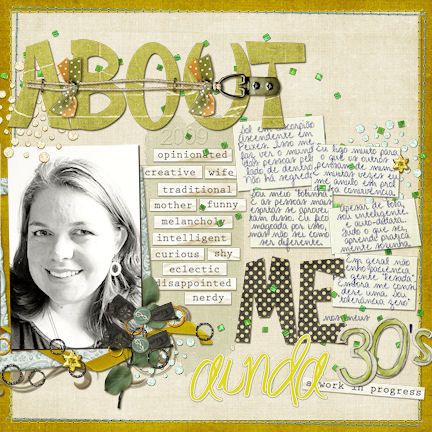 ABOUT
2009
opinionated
creative wife
traditional
mother funny
melancholic
intelligent
curious shy
eclectic
disappointed
nerdy
Sol em escorpião
Ascendente em
Peixes. Isso me
faz ver o mundo
das pessoas pelo
lado de dentro
não há segredo
Eu ligo muito para
o que os outros
pensam de mim
muitas vezes eu
me anulo em prol
da convivência
Sou meio "bobinha"
E as pessoas mais
espertas se aprovei
tam disso. Eu fico
magoada por isso,
mas não sei como
ser diferente.
Apesar de boba,
sou inteligente
e auto-didata
tudo o que sei,
aprendi pratica
mente sozinha
Em geral não
tenho paciência
gente "lesada".
Embora me consi
dere uma Sou
tolerância zero"
ME
nos meus
ainda 30's
a work in progress